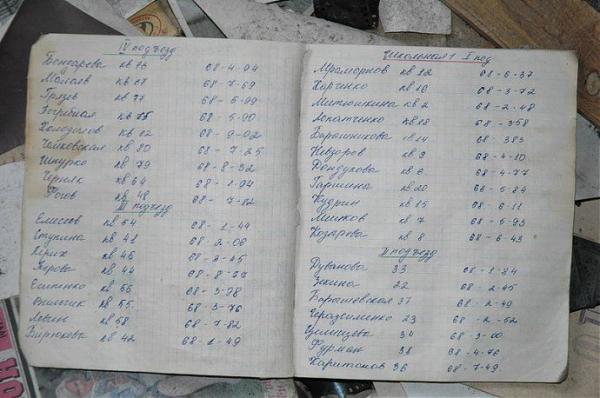 IV подъезд
Бондарева кв 73 68-4-04
Малаев кв 67 68-7-69
Грязев кв 77 68-5-99
Погребная кв 75 68-5-90
Холодолов кв 62 68-9-02
Чайковская кв 80 68-7-25
Шнурко кв 79 68-8-32
Черняк кв 64 68-1-94
Рогов кв 48 68-7-82
III подъезд
Елисеев кв 54 68-1-44
Ступина кв 41 68-2-06
кв 46 68-3-45
Перова кв 44 68-8-57
Ещенко кв 56 68-3-98
кв 55 68-3-76
Левин кв 58 68-7-82
Бирюкова кв 42 68-1-49
Школьная 1 I под
Мраморнов кв 12 68-6-37
Харченко кв 10 68-3-72
Митюшкина кв 2 68-2-48
Лопатченко кв 18 68-358
Барашникова кв 14 68-383
Невзоров кв 9 68-4-10
Дондукова кв 6 68-4-77
Гаршина кв 20 68-5-84
Кудрин кв 15 68-6-11
Мишков кв 7 68-5-93
Козарева кв 8 68-6-43
II подъезд
Дуванова 33 68-1-84
Зекина 22 68-2-45
Борашевская 31 68-2-49
Герасименко 23 68-2-52
34 68-3-00
Фурман 38 68-4-76
Харитонов 36 68-7-49